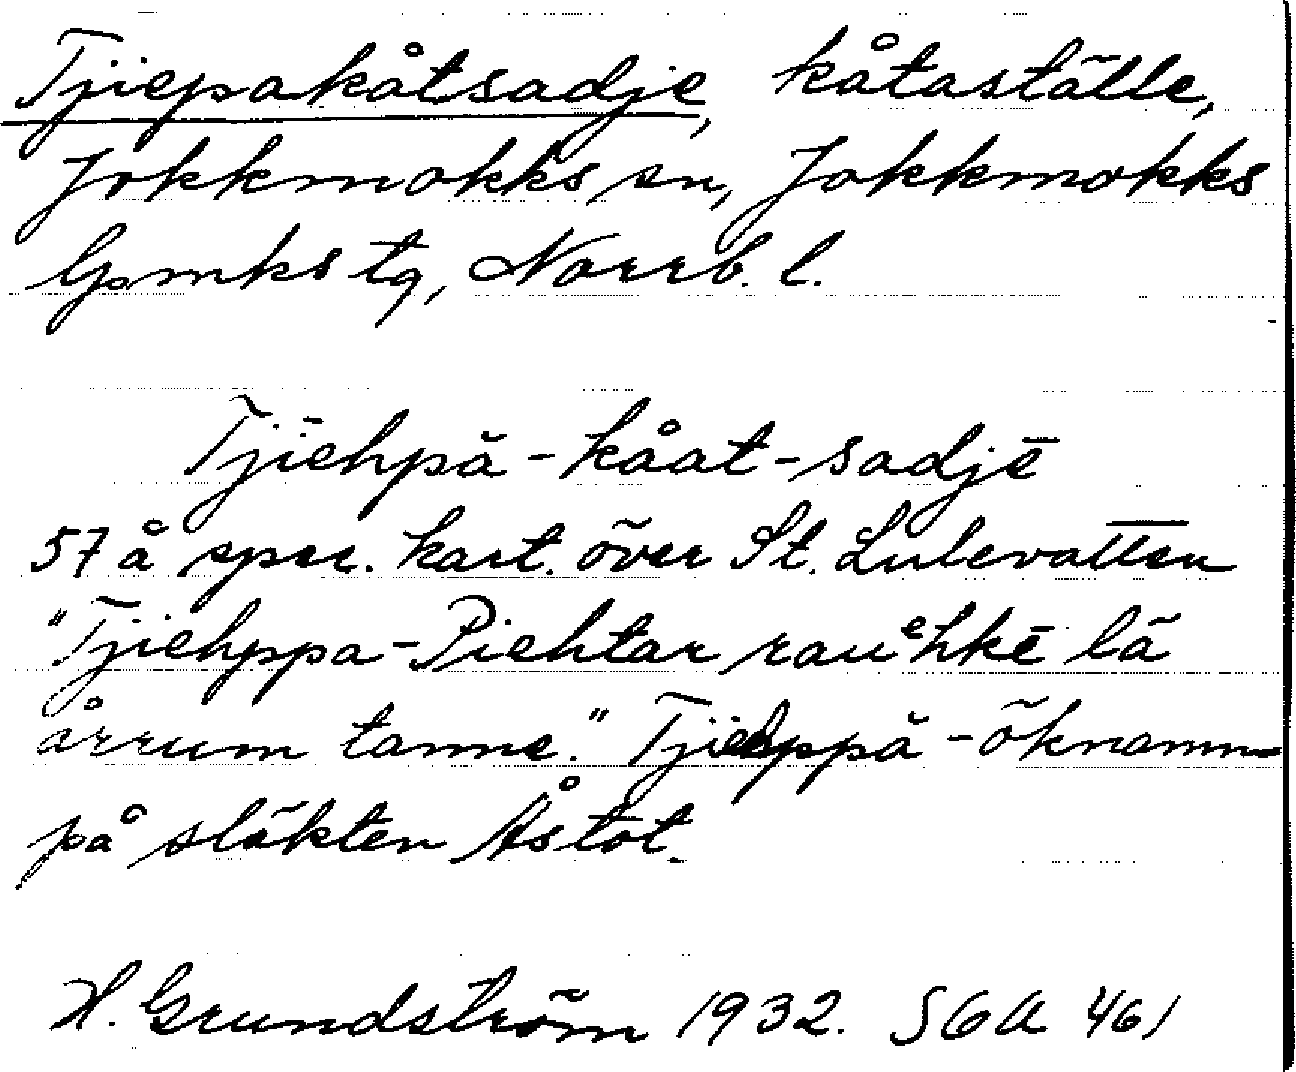 Tjiepakåtsadje, kåtaställe,
Jokkmokks sn, Jokkmokks
lpmks tg, Norrb. l.
Tjiēhpă - kåat - sadjē
57 å spec. kart. över St. Lulevatten
"Tjiehppa - Piehtar rauᵉhkē lä
årrum tanne." Tjiehppă - öknamn
på släkten Åstot.
H. Grundström 1932. SGA 461